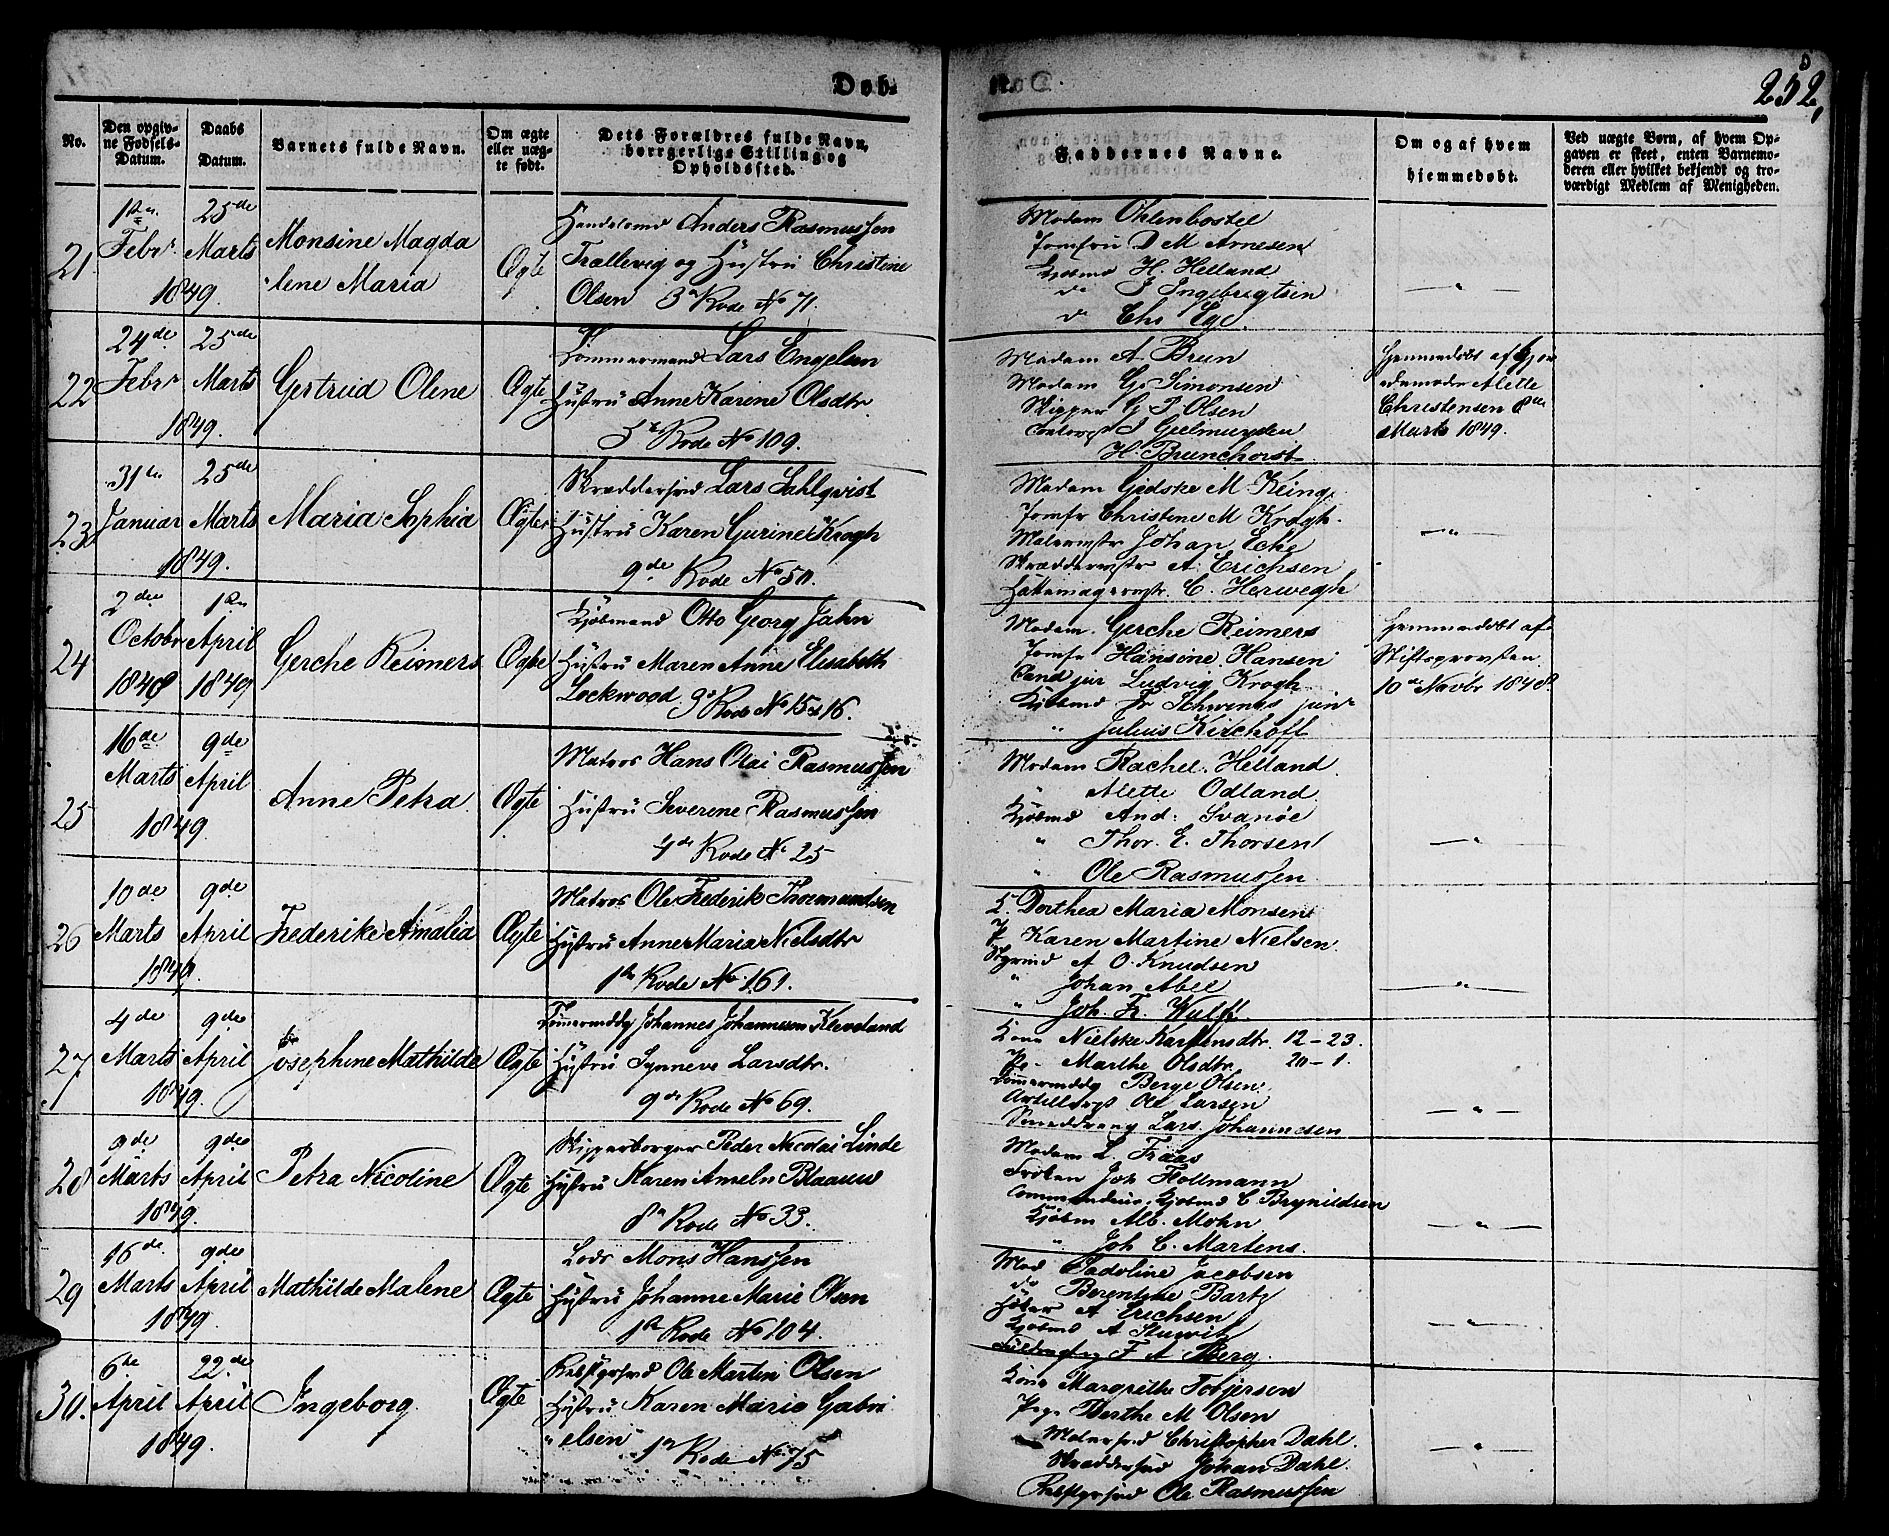 Døb.
252,
No.
Den opgiv-
ne Fødsels-
Datum.
Daabs
Datum.
Barnets fulde Navn.
Om ægte
eller uæg-
te født.
Dets Forældres fulde Navn,
borgerlige Stilling og
Opholdssted.
Faddernes Navne.
Om og af hvem
hjemmedøbt.
Ved uægte Børn, af hvem Op-
gaven er skeet, enten Barnemo-
deren eller hvilket bekjendt og tro-
værdigt Medlem af Menigheden.
21.
Febr
1849.
25de
Marts
Monsine Magda
lene Maria
Ægte
Anders Rasmussen
Trællevig og Hustru Christine
Olsen 3 Rode No 71.
Madam Ohlenbostel
Jomfru D M Arnesen
Kjøbmd H. Helland
do I Ingebrigtsen
do Chr Ege.
22
24de
Febr
1849.
25de
Marts
Gertrud Olene
Ægte
Tømmermand Lars Engelsen
Hustru Anne Karine Olsdtr
5 Rode No 109.
Madam A. Brun
Madam Gr Simonsen
Skipper G P Olsen
I Geelmuyden
H. Brunchorst
Hjemmedøbt af Gjor
demoder Alette
Christensen 8de
Marts 1849.
23
31te
Januar
1849.
25de
Marts
Maria Sophia
Ægte
Lars Sahlqvist
Hustru Karen Gurine Krogh
9de Rode No 50.
Madam Gidske M Reing
Jomfr Christine M Krogh.
Malermstr Johan Eche
Skræddermstr A. Erichsen
Hattemagermstr. C. Herwegh
24
2den
Octobr
1848
April
1849
Gerche Reimers
Ægte
Kjøbmand Otto Georg Jahn
Hustru Maren Anne Elisabeth
Lockwood 9 Rode No 15 & 16.
Madam Gerche Reimers
Jomfr Hansine Hansen
Cand jur Ludvig Krogh
Kjøbmd Fr Schwenes jun
" Julius Kirchoff
Hjemmedøbt af
Stiftsprovsten
10de Novbr 1848.
25
16de
Marts
1849.
9de
April
Anne Petra
Ægte
Matros Hans Olai Rasmussen
Hustru Severene Rasmussen
4de Rode No 25
Madam Rachel Helland
" Alette Odland
Kjøbmd And. Svanøe
" Thor. E. Thorsen
" Ole Rasmussen
26
10de
Marts
1849.
9de
April
Frederike Amalia
Ægte
Matros Ole Frederik Thormundsen
Hustru Anne Maria Nielsdtr
1te Rode No 161.
Dorthea Maria Monsen
P Karen Martine Nielsen
A O. Knudsen
" Johan Abel
" Joh. Fr. Wulff.
27
4de
Marts
1849.
9de
April
Josephine Mathilde
Ægte
Johannes Johannesen Kleveland
Hustru Synneve Larsdtr.
9de Rode No 69.
Kone Nielske Karstensdtr. 12-23.
Marthe Olsdtr. 20-1.
Berge Olsen.
Ole Larsen
Lars Johannesen
28
9de
Marts
1849.
9de
April
Petra Nicoline
Ægte
Skipperborger Peder Nicolai Linde
Hustru Karen Ameln Blaauw
8 Rode No 33.
Madam L. Fraas
Frøken Joh Hollmann
Kjøbmd C Brynildsen
Kjøbm Alb. Mohn
" Joh C. Martens.
29
16de
Marts
1849.
9de
April
Mathilde Malene
Ægte
Lods Mons Hanssen
Hustru Johanne Marie Olsen
1te Rode No 104.
Mad Jacobsen
do Berenthe Bartz
A Erichsen
Kjøbmd A Stuwitz
F A Berg.
30.
6te
April
1849.
22de
April
Ingeborg
Ægte
Ole Martin Olsen
Hustru Karen Marie Gabri
elsen 1te Rode No 75
Kone Margrethe Tobjersen
Pige Berthe M Olsen
Christopher Dahl.
Johan Dahl.
Ole Rasmussen